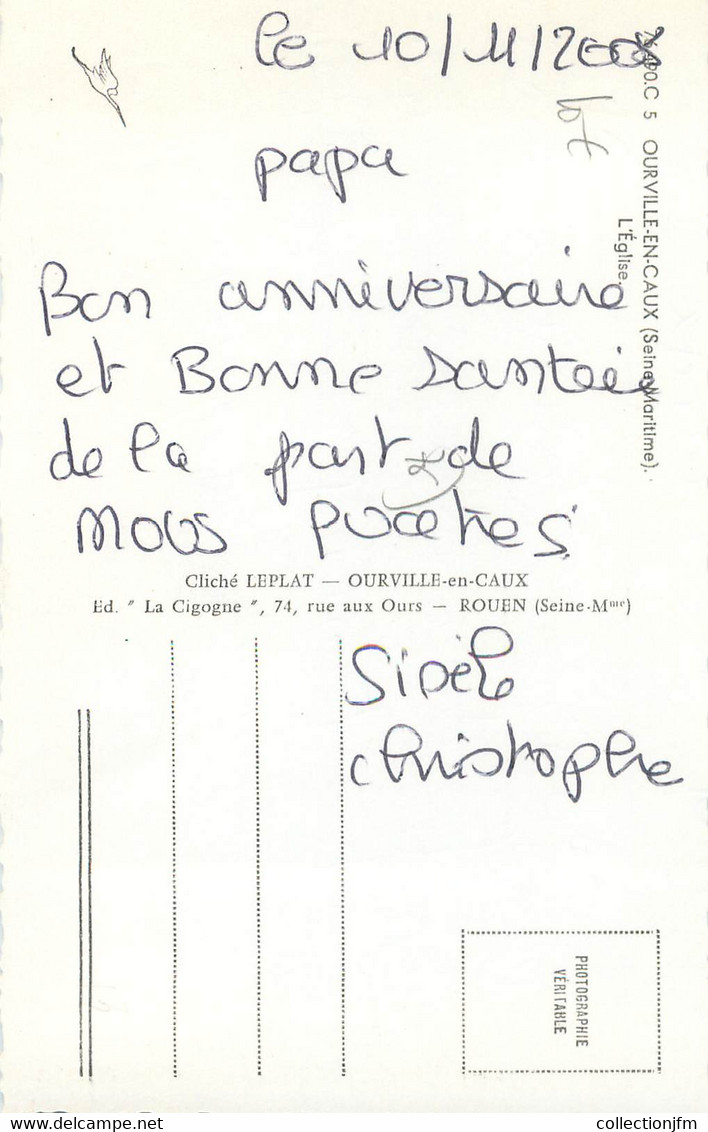 le 10/11/2008
76490.C 5 OURVILLE-EN-CAUX (Seine-Maritime).
L'Église.
papa
Bon anniversaire
et Bonne santeie
de la part de
nous
Cliché LEPLAT — OURVILLE-en-CAUX
Ed. " La Cigogne ", 74, rue aux Ours — ROUEN (Seine-Mme)
christophe
PHOTOGRAPHIE
VÉRITABLE
collectionjfm